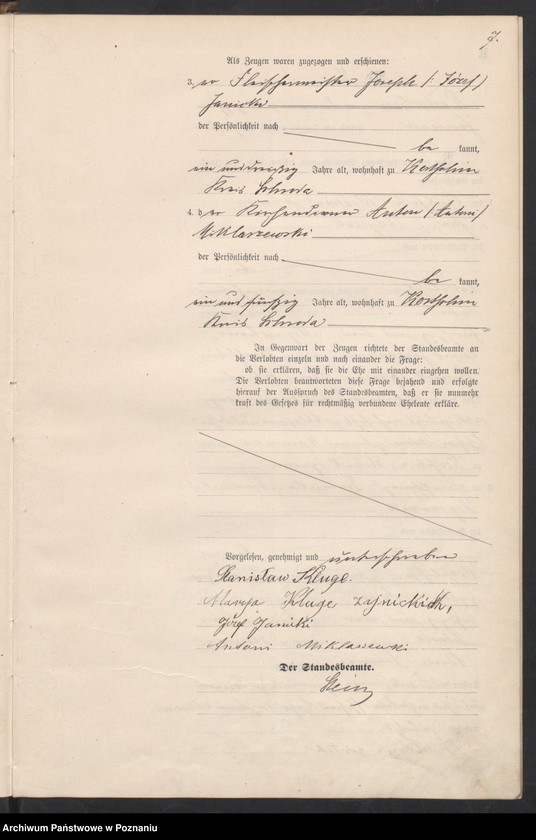 7.
Als Zeugen waren zugezogen und erschienen:
3. der Fleischermeister Joseph (: Józef)
Janicki
der Persönlichkeit nach
be kannt,
ein und dreißig Jahre alt, wohnhaft zu
Kreis Schroda
4. der Kirchendiener Anton (: Antoni)
Miklaszewski
der Persönlichkeit nach
be kannt,
ein und fünfzig Jahre alt, wohnhaft zu
Kreis Schroda
In Gegenwart der Zeugen richtete der Standesbeamte an
die Verlobten einzeln und nach einander die Frage:
ob sie erklären, daß sie die Ehe mit einander eingehen wollen.
Die Verlobten beantworteten diese Frage bejahend und erfolgte
hierauf der Ausspruch des Standesbeamten, daß er sie nunmehr
kraft des Gesetzes für rechtmäßig verbundene Eheleute erkläre.
Vorgelesen, genehmigt und unterschrieben
Stanisław Kluge.
Maryja Kluge z Janickich,
Józef Janicki
Antoni Miklaszewski
Der Standesbeamte.
Archiwum Państwowe w Poznaniu